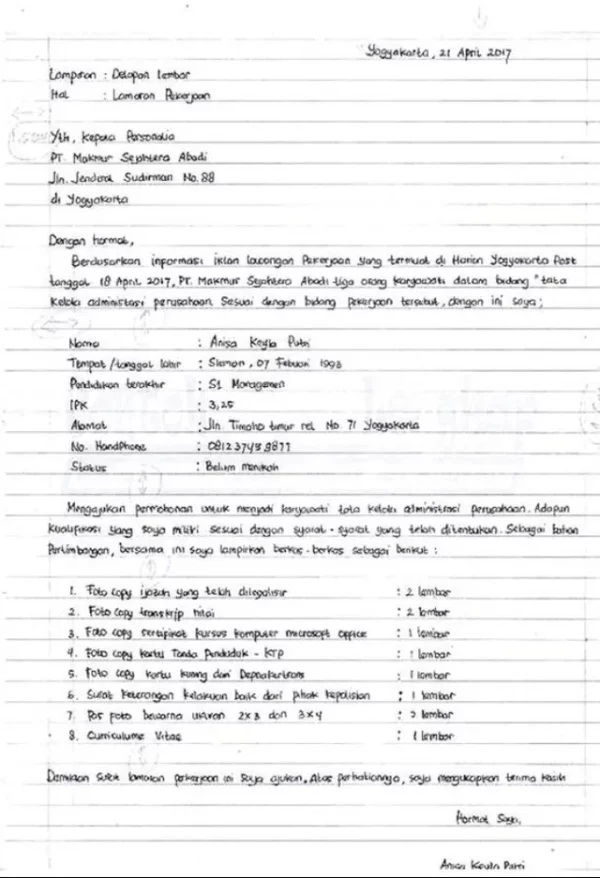 Yogyakarta, 21 April 2017
Lampiran : Delapan lembar
Hal : Lamaran Pekerjaan
Yth, Kepala Personalia
PT. Makmur Sejahtera Abadi
Jln. Jenderal Sudirman No. 88
di Yogyakarta
Dengan hormat,
Berdasarkan informasi iklan lowongan Pekerjaan yang termuat di Harian Yogyakarta Post
tanggal 18 April 2017, PT. Makmur Sejahtera Abadi tiga orang karyawati dalam bidang "tata
Kelola administrasi perusahaan Sesuai dengan bidang pekerjaan tersebut, dengan ini saya;
Nama : Anisa Keyla Putri
Tempat /tanggal lahir : Sleman, 07 Februari 1993
Pendidikan terakhir : S1 Managemen
IPK : 3,25
Alamat : Jln. Timoho timur rel No. 71 Yogyakarta
No. Handphone : 081237459871
Status : Belum menikah
Mengajukan permohonan untuk menjadi karyawati tata kelola administrasi perusahaan. Adapun
Kualifikasi yang saya miliki sesuai dengan syarat-syarat yang telah ditentukan. Sebagai bahan
Pertimbangan, bersama ini saya lampirkan berkas-berkas sebagai berikut :
1. Foto copy ijazah yang telah dilegalisir : 2 lembar
2. Foto copy transkrip nilai : 2 lembar
3. Foto copy sertipikat kursus komputer microsoft office : 1 lembar
4. Foto copy kartu Tanda Penduduk - KTP : 1 lembar
5. Foto copy kartu kuning dari : 1 lembar
6. Surat keterangan kelakuan baik dari pihak kepolisian : 1 lembar
7. Pas foto bewarna ukuran 2x3 dan 3x4 : 2 lembar
8. Curriculume Vitae : 1 lembar
Demikian Surat lamaran pekerjaan ini Saya ajukan, Atas perhatiannya, saya mengucapkan terima kasih
Hormat Saya,
Anisa Keyla Putri